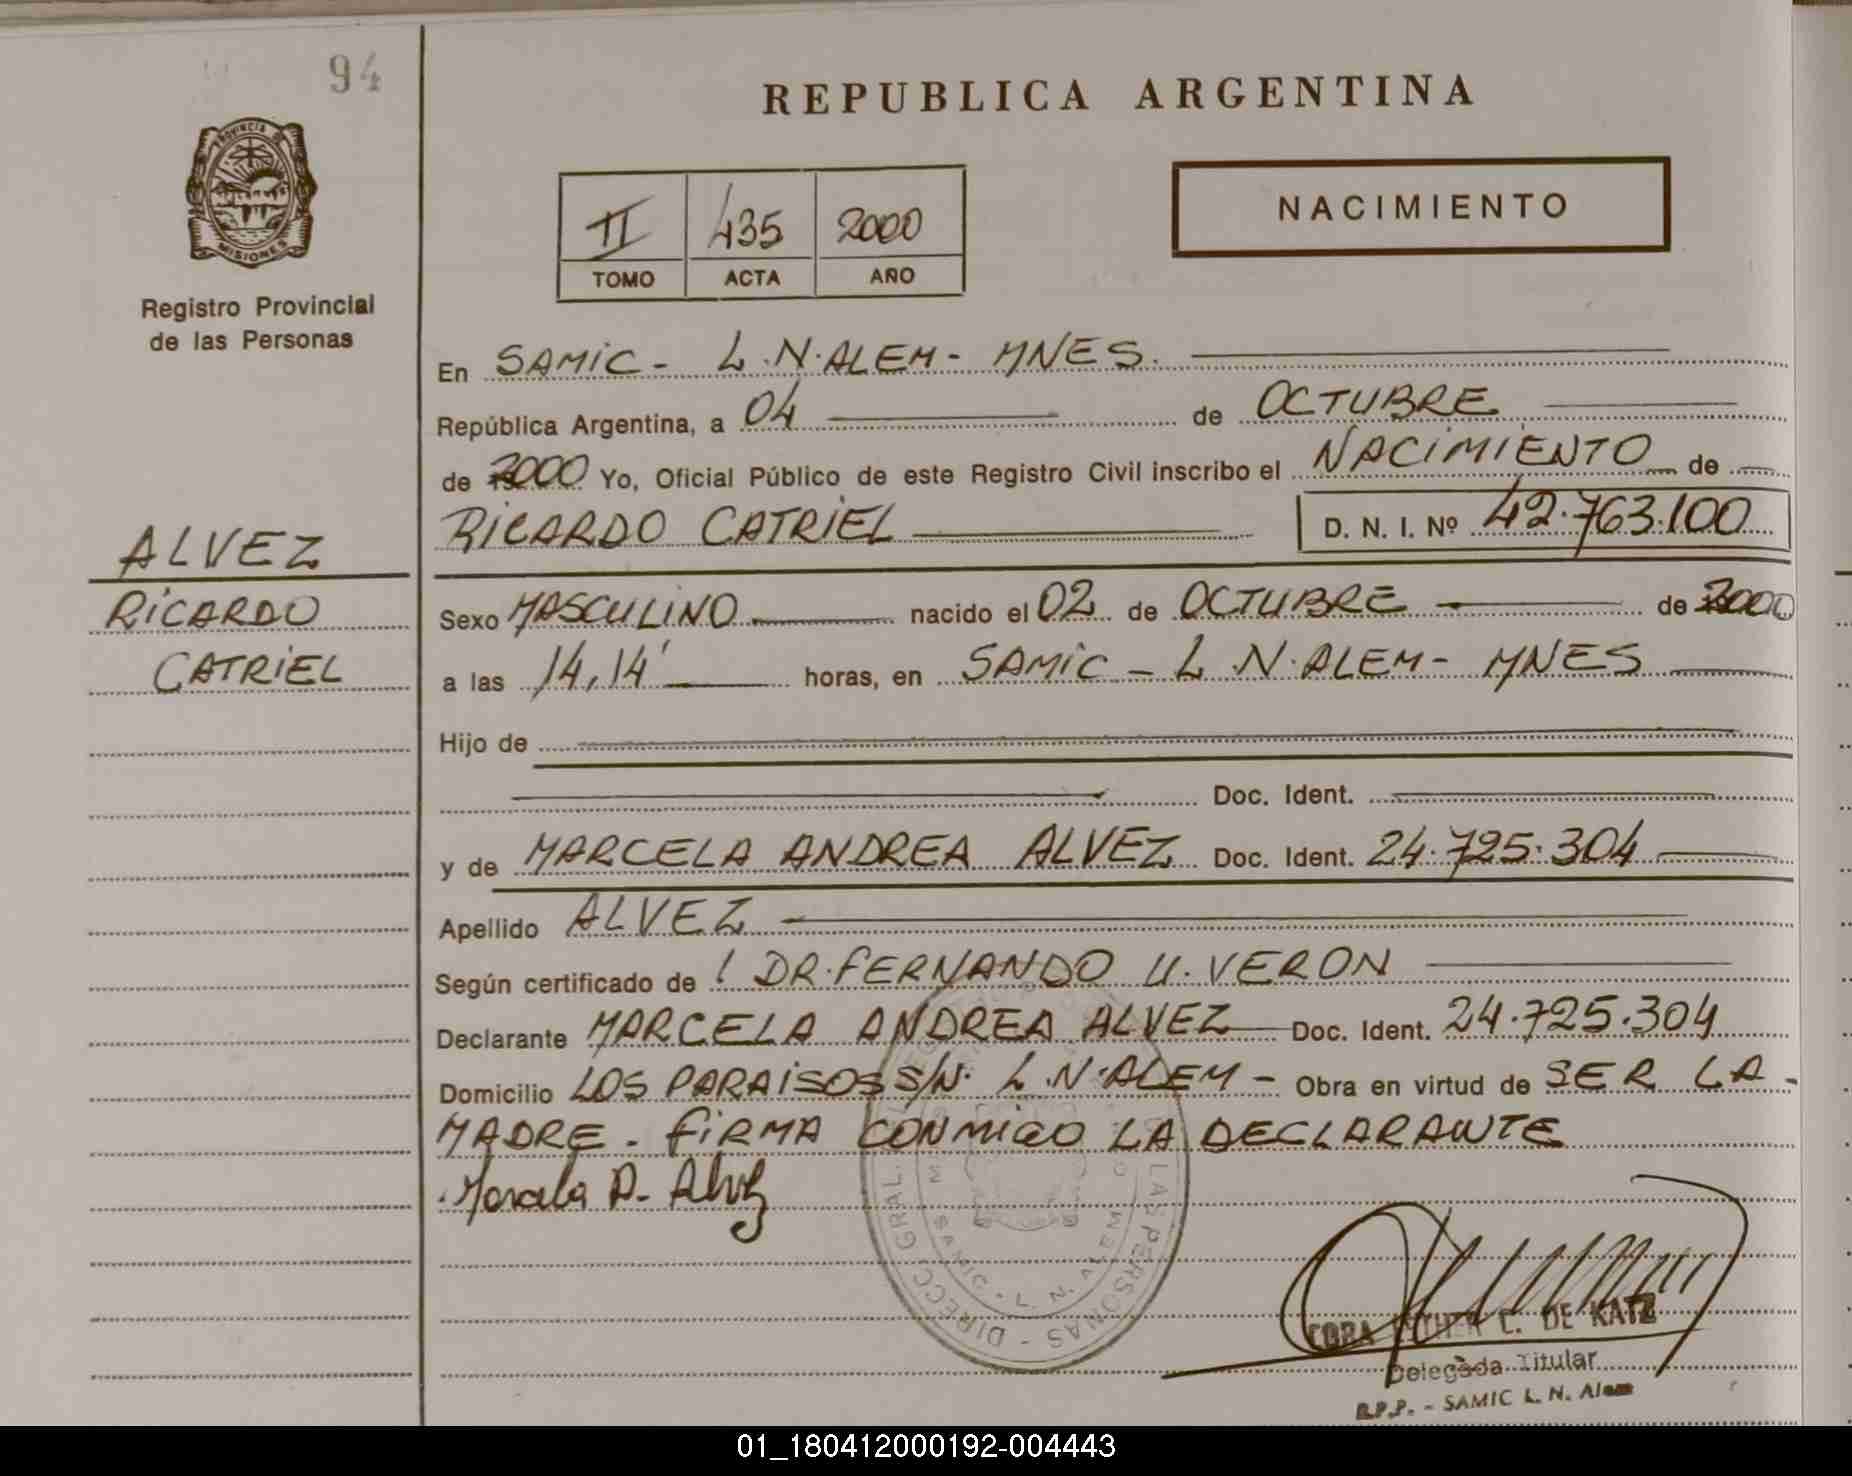 94
REPUBLICA ARGENTINA
PROVINCIA DE
MISIONES
Registro Provincial
de las Personas
II 435 2000
TOMO ACTA AÑO
NACIMIENTO
En SAMIC - L.N.ALEM - MNES.
República Argentina, a 04 de OCTUBRE
de 2000 Yo, Oficial Público de este Registro Civil inscribo el NACIMIENTO de
RICARDO CATRIEL D. N. I. Nº 42.763.100
ALVEZ
RICARDO
CATRIEL
Sexo MASCULINO nacido el 02 de OCTUBRE de 2000
a las 14,14' horas, en SAMIC - L.N.ALEM - MNES
Hijo de
Doc. Ident.
y de MARCELA ANDREA ALVEZ Doc. Ident. 24.725.304
Apellido ALVEZ
Según certificado de DR. FERNANDO U. VERON
Declarante MARCELA ANDREA ALVEZ Doc. Ident. 24.725.304
Domicilio LOS PARAISOS S/N. L.N.ALEM - Obra en virtud de SER LA -
MADRE - FIRMA CONMIGO LA DECLARANTE
Marcela A. Alvez
DIRECC. GRAL. LAS PERSONAS
SAMIC - L. N. ALEM
ESTHER C. DE KATZ
Delegada Titular
R.P.P. - SAMIC L. N. Alem
01_180412000192-004443